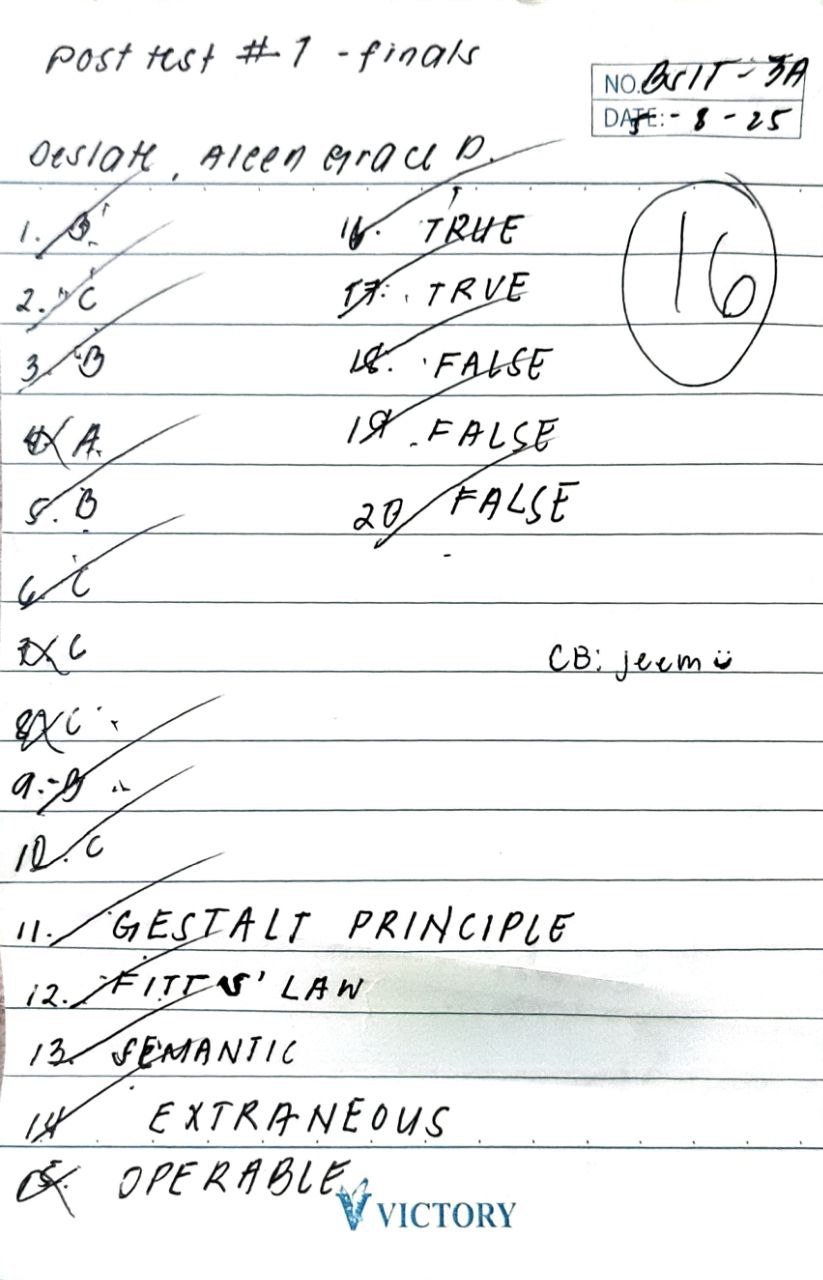 Post test # 1 - finals
NO. BSIT - 3A
DATE: 5 - 8 - 25
Deslate, Aleen Grace D.
1. B
2. C
3. B
4. A
5. B
6. C
7. C
8. C
9. B
10. C
11. GESTALT PRINCIPLE
12. FITTS' LAW
13. SEMANTIC
14 EXTRANEOUS
15. OPERABLE
16. TRUE
17. TRUE
18. FALSE
19. FALSE
20 FALSE
16
CB: jeem
VICTORY